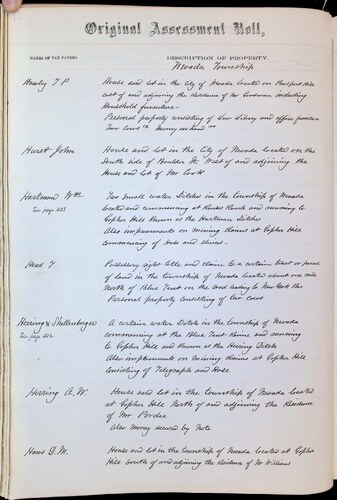 Original Assessment Roll,
NAMES OF TAX PAYERS.
DESCRIPTION OF PROPERTY.
Nevada Township
T P
House and lot in the City of Nevada located on Prospect Hill
East of and adjoining the Residence of Mr Goodman including
Household furniture
Personal property consisting of Law Library and office furniture
Two Cows Money on hand
Hurst John
House and lot in the City of Nevada located on the
South Side of Boulder St West of and adjoining the
House and lot of Mr Cook
Hartman Wm
See page 423
Two Small water Ditches in the Township of Nevada
located and commencing at Ranch and running to
Gopher Hill Known as the Hartman Ditches
Also improvements on mining claims at Gopher Hill
commencing of Hose and sluices
Head T
Possessory right title and claim to a certain tract or parcel
of land in the township of Nevada located about one mile
North of Blue Tent on the road leading to
Personal property consisting of two cows
Herring & Shellenberger
See page 424
A certain water Ditch in the Township of Nevada
commencing at the Blue Tent and running
to Gopher Hill and Known as the Herring Ditch
Also improvements on mining claims at Gopher Hill
Consisting of Telegraph and Hose
Herring A. W.
House and lot in the Township of Nevada located
at Gopher Hill North of and adjoining the Residence
of Mr Pardee
Also money secured by Note
Haus D. M.
House and lot in the township of Nevada located at Gopher
Hill South of and adjoining the Residence of Mr Williams